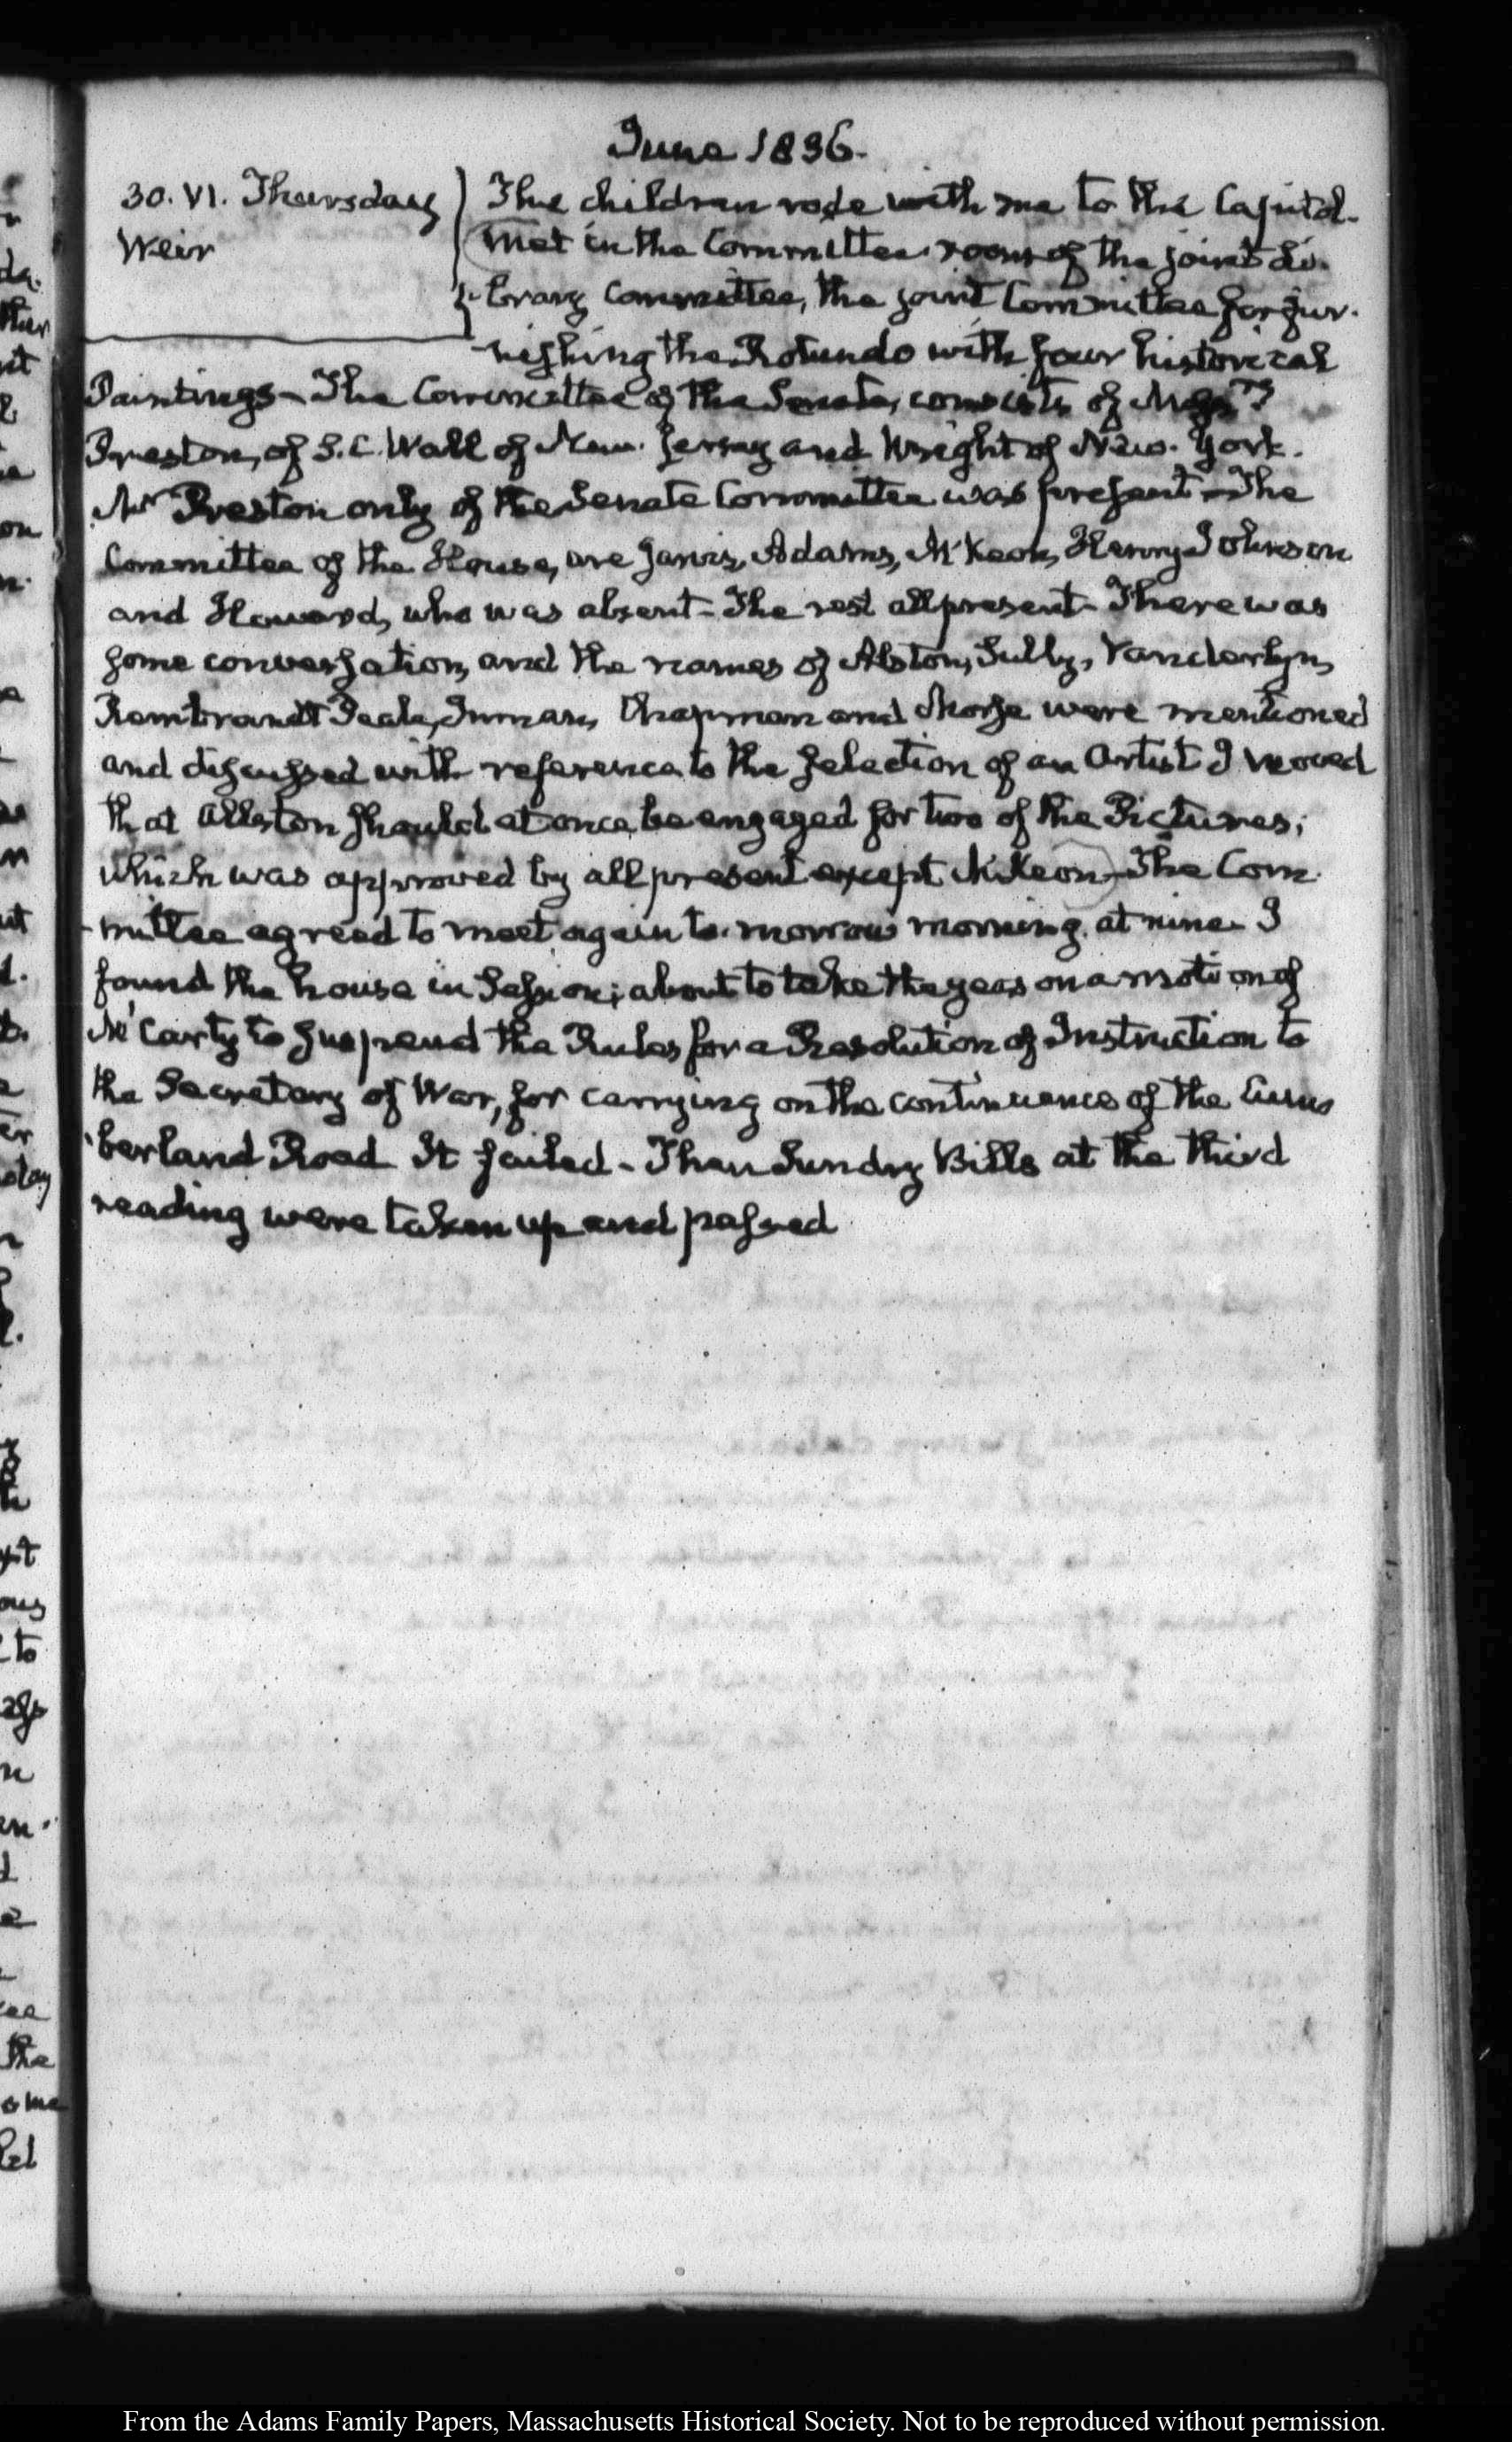 June 1836.
30. VI. Thursday
Weir
The children rode with me to the Capitol.
Met in the Committee room of the joint Li-
brary Committee, the joint Committee for fur-
nishing the Rotundo with four historical
Paintings- The Committee of the Senate, consists of Messrs
Preston, of S.C. Wall of New-Jersey and Wright of New-York.
Mr Preston only of the Senate Committee was present- The
Committee of the House, are Jarvis, Adams, McKeon, Henry Johnson
and Howard, who was absent- The rest all present- There was
some conversation, and the names of Alston, Sully, Vanderlyn,
Rembrandt Peale, Inman, Chapman and Morse were mentioned
and discussed with reference to the selection of an Artist I moved
that Allston should at once be engaged for two of the Pictures;
which was approved by all present except McKeon- The Com-
-mittee agreed to meet again to-morrow morning at nine- I
found the house in Session; about to take the yeas on a motion of
McCarty to suspend the Rules for a Resolution of Instruction to
the Secretary of War, for carrying on the continuance of the Cum
berland Road It failed- Then sundry Bills at the third
reading were taken up and passed
From the Adams Family Papers, Massachusetts Historical Society. Not to be reproduced without permission.